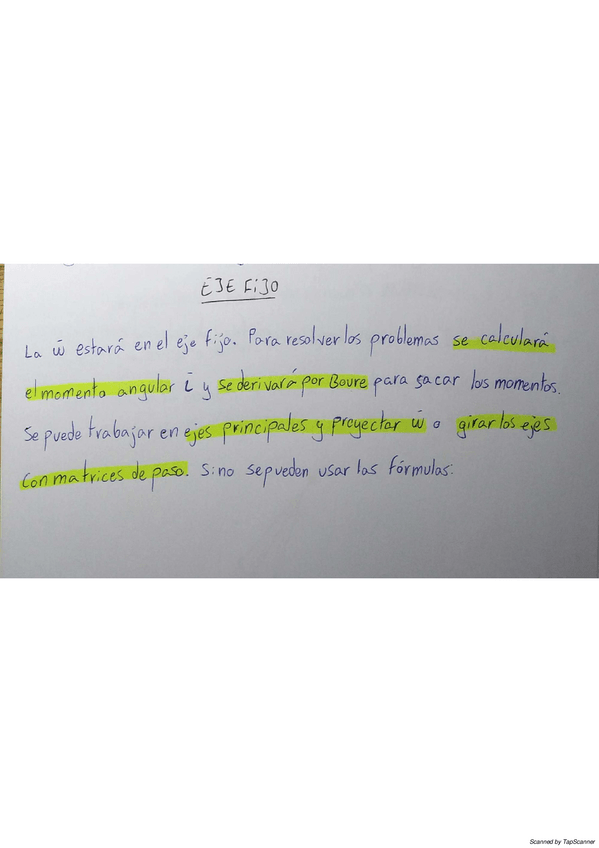 EJE FIJO
La ω̄ estará en el eje fijo. Para resolver los problemas se calculará
el momento angular L̄ y se derivará por Boure para sacar los momentos.
Se puede trabajar en ejes principales y proyectar ω̄ o girar los ejes
con matrices de paso. Sino se pueden usar las fórmulas:
Scanned by TapScanner